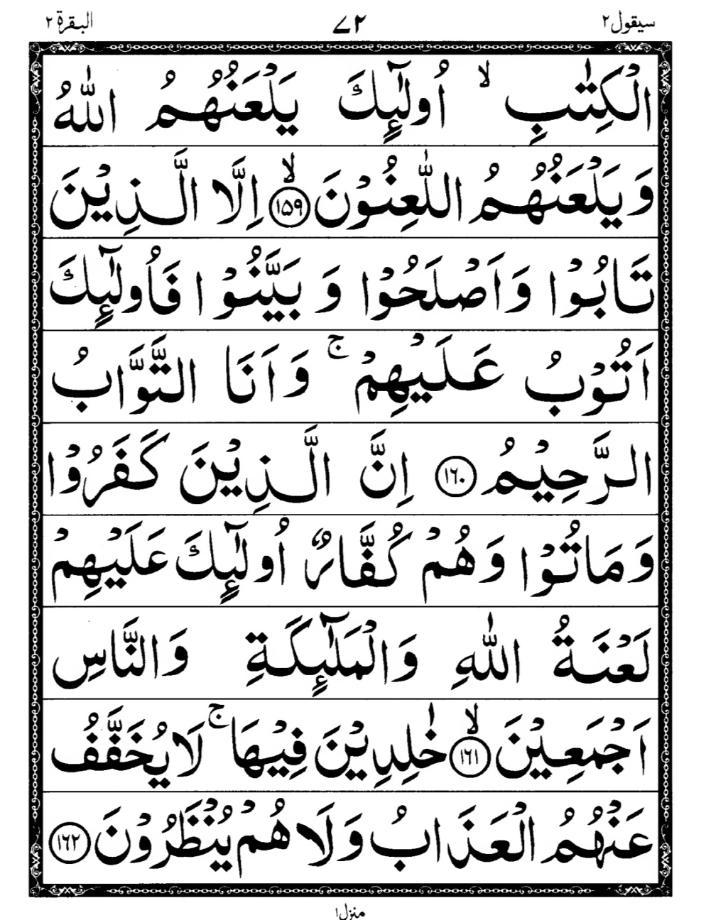 سیقول۲ ۷۲ البقرة ۲
الْكِتٰبِ ۙ اُولٰٓئِكَ يَلْعَنُهُمُ اللّٰهُ
وَيَلْعَنُهُمُ اللّٰعِنُوْنَ ۙ﴿۱۵۹﴾ اِلَّا الَّذِيْنَ
تَابُوْا وَاَصْلَحُوْا وَ بَيَّنُوْا فَاُولٰٓئِكَ
اَتُوْبُ عَلَيْهِمْ ۚ وَاَنَا التَّوَّابُ
الرَّحِيْمُ ﴿۱۶۰﴾ اِنَّ الَّذِيْنَ كَفَرُوْا
وَمَاتُوْا وَهُمْ كُفَّارٌ اُولٰٓئِكَ عَلَيْهِمْ
لَعْنَةُ اللّٰهِ وَالْمَلٰٓئِكَةِ وَالنَّاسِ
اَجْمَعِيْنَ ۙ﴿۱۶۱﴾ خٰلِدِيْنَ فِيْهَا ۚ لَا يُخَفَّفُ
عَنْهُمُ الْعَذَابُ وَلَا هُمْ يُنْظَرُوْنَ ﴿۱۶۲﴾
منزل۱